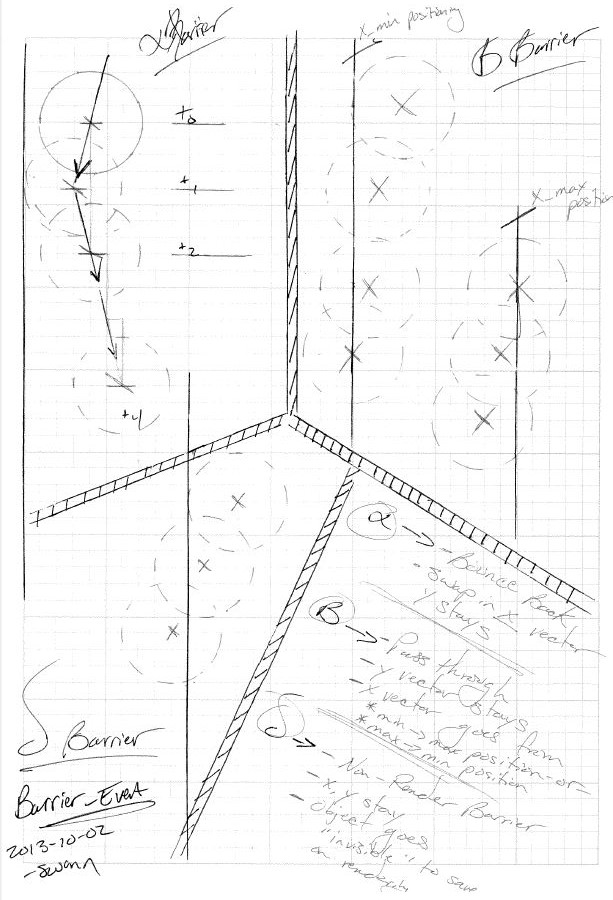 α Barrier
t0
t1
t2
t4
X_min positioning
B Barrier
X_max
position
α → - Bounce Back
- swap in X vector
Y stays
B → - Pass through
- Y vector stays
- X vector goes from
* min → max position -or-
* max → min position
δ → - Non-Render Barrier
- X, Y stay
- object goes
"invisible" to save
on
δ Barrier
Barrier-Event
2013-10-02
- Swann